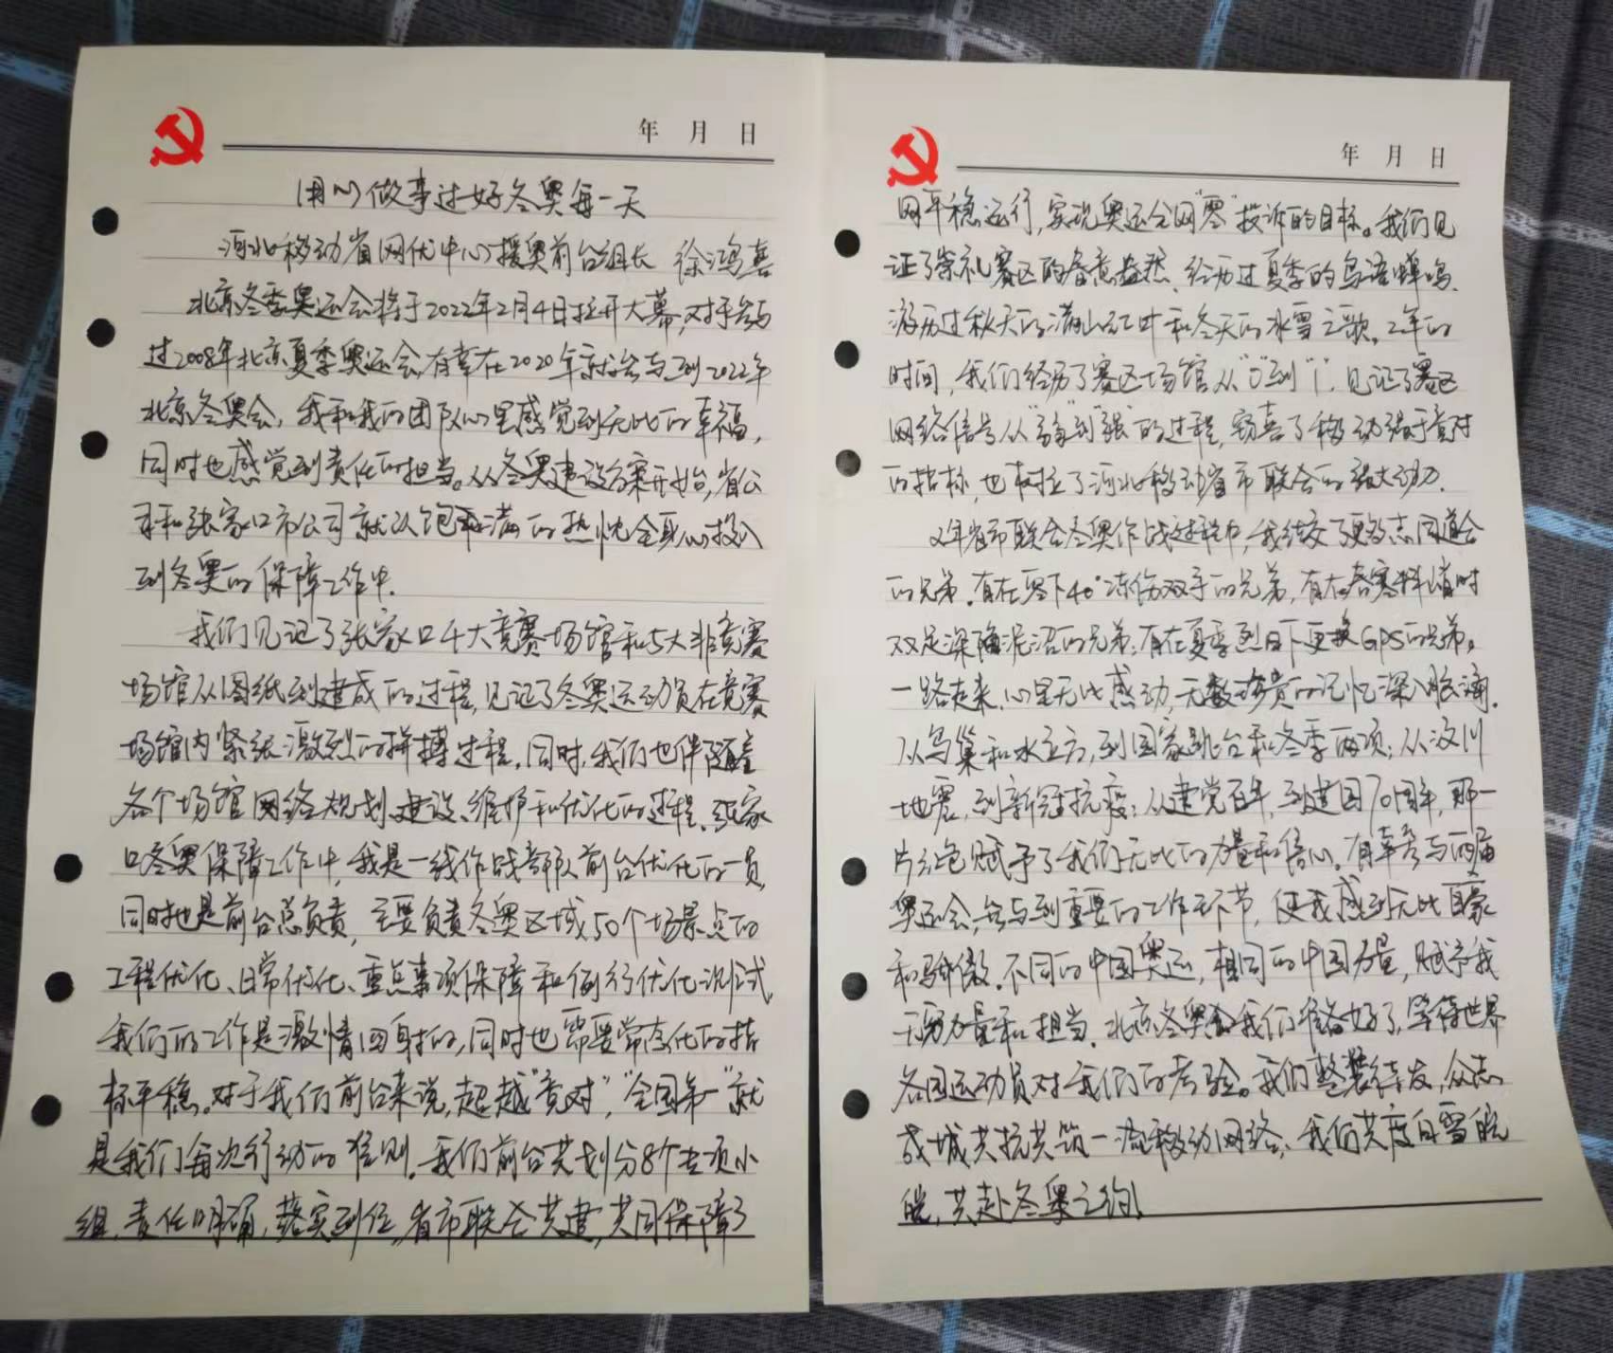 年 月 日
用心做事过好冬奥每一天
河北移动省网优中心援奥前台组长 徐鸿喜
北京冬季奥运会将于2022年2月4日拉开大幕,对于参与
过2008年北京夏季奥运会,有幸在2020年就参与到2022年
北京冬奥会,我和我的团队心里感觉到无比的幸福,
同时也感觉到责任的担当。从冬奥建设方案开始,省公
司和张家口市公司就以饱和满的热忱全身心投入
到冬奥的保障工作中.
我们见证了张家口4大竞赛场馆和5大非竞赛
场馆从图纸到建成的过程,见证了冬奥运动员在竞赛
场馆内紧张激烈的拼搏过程.同时,我们也伴随着
各个场馆网络规划、建设、维护和优化的过程.张家
口冬奥保障工作中,我是一线作战部队前台优化的一员,
同时也是前台总负责,主要负责冬奥区域50个场景点的
工程优化、日常优化、重点事项保障和例行优化测试,
我们的工作是激情四射的,同时也需要常态化的指
标平稳。对于我们前台来说,超越"竞对","全国第一"就
是我们每次行动的准则.我们前台共划分8个专项小
组,责任明确,落实到位,省市联合共建,共同保障了
年 月 日
网平稳运行,实现奥运全网"零"投诉的目标。我们见
证了崇礼赛区的春意盎然、经历过夏季的鸟语蝉鸣、
游历过秋天的满山红叶和冬天的冰雪之歌。2年的
时间,我们经历了赛区场馆从"0"到"1",见证了赛区
网络信号从"弱"到"强"的过程,窃喜了移动强于竞对
的指标,也树立了河北移动省市联合的强大动力.
2年省市联合冬奥作战过程中,我结交了更多志同道合
的兄弟.有在零下40°冻伤双手的兄弟,有在春寒料峭时
双足深陷泥沼的兄弟;有在夏季烈日下更换GPS的兄弟。
一路走来,心里无比感动,无数珍贵的记忆深入脑海.
从鸟巢和水立方,到国家跳台和冬季两项;从汶川
地震,到新冠抗疫;从建党百年,到建国70周年,那一
片红色赋予了我们无比的力量和信心。有幸参与两届
奥运会,参与到重要的工作环节,使我感到无比自豪
和骄傲.不同的中国奥运,相同的中国力量,赋予我
无穷力量和担当.北京冬奥会我们准备好了,等待世界
各国运动员对我们的考验。我们整装待发,众志
成城共抗共筑一流移动网络、我们共度白雪皑
皑,共赴冬奥之约!